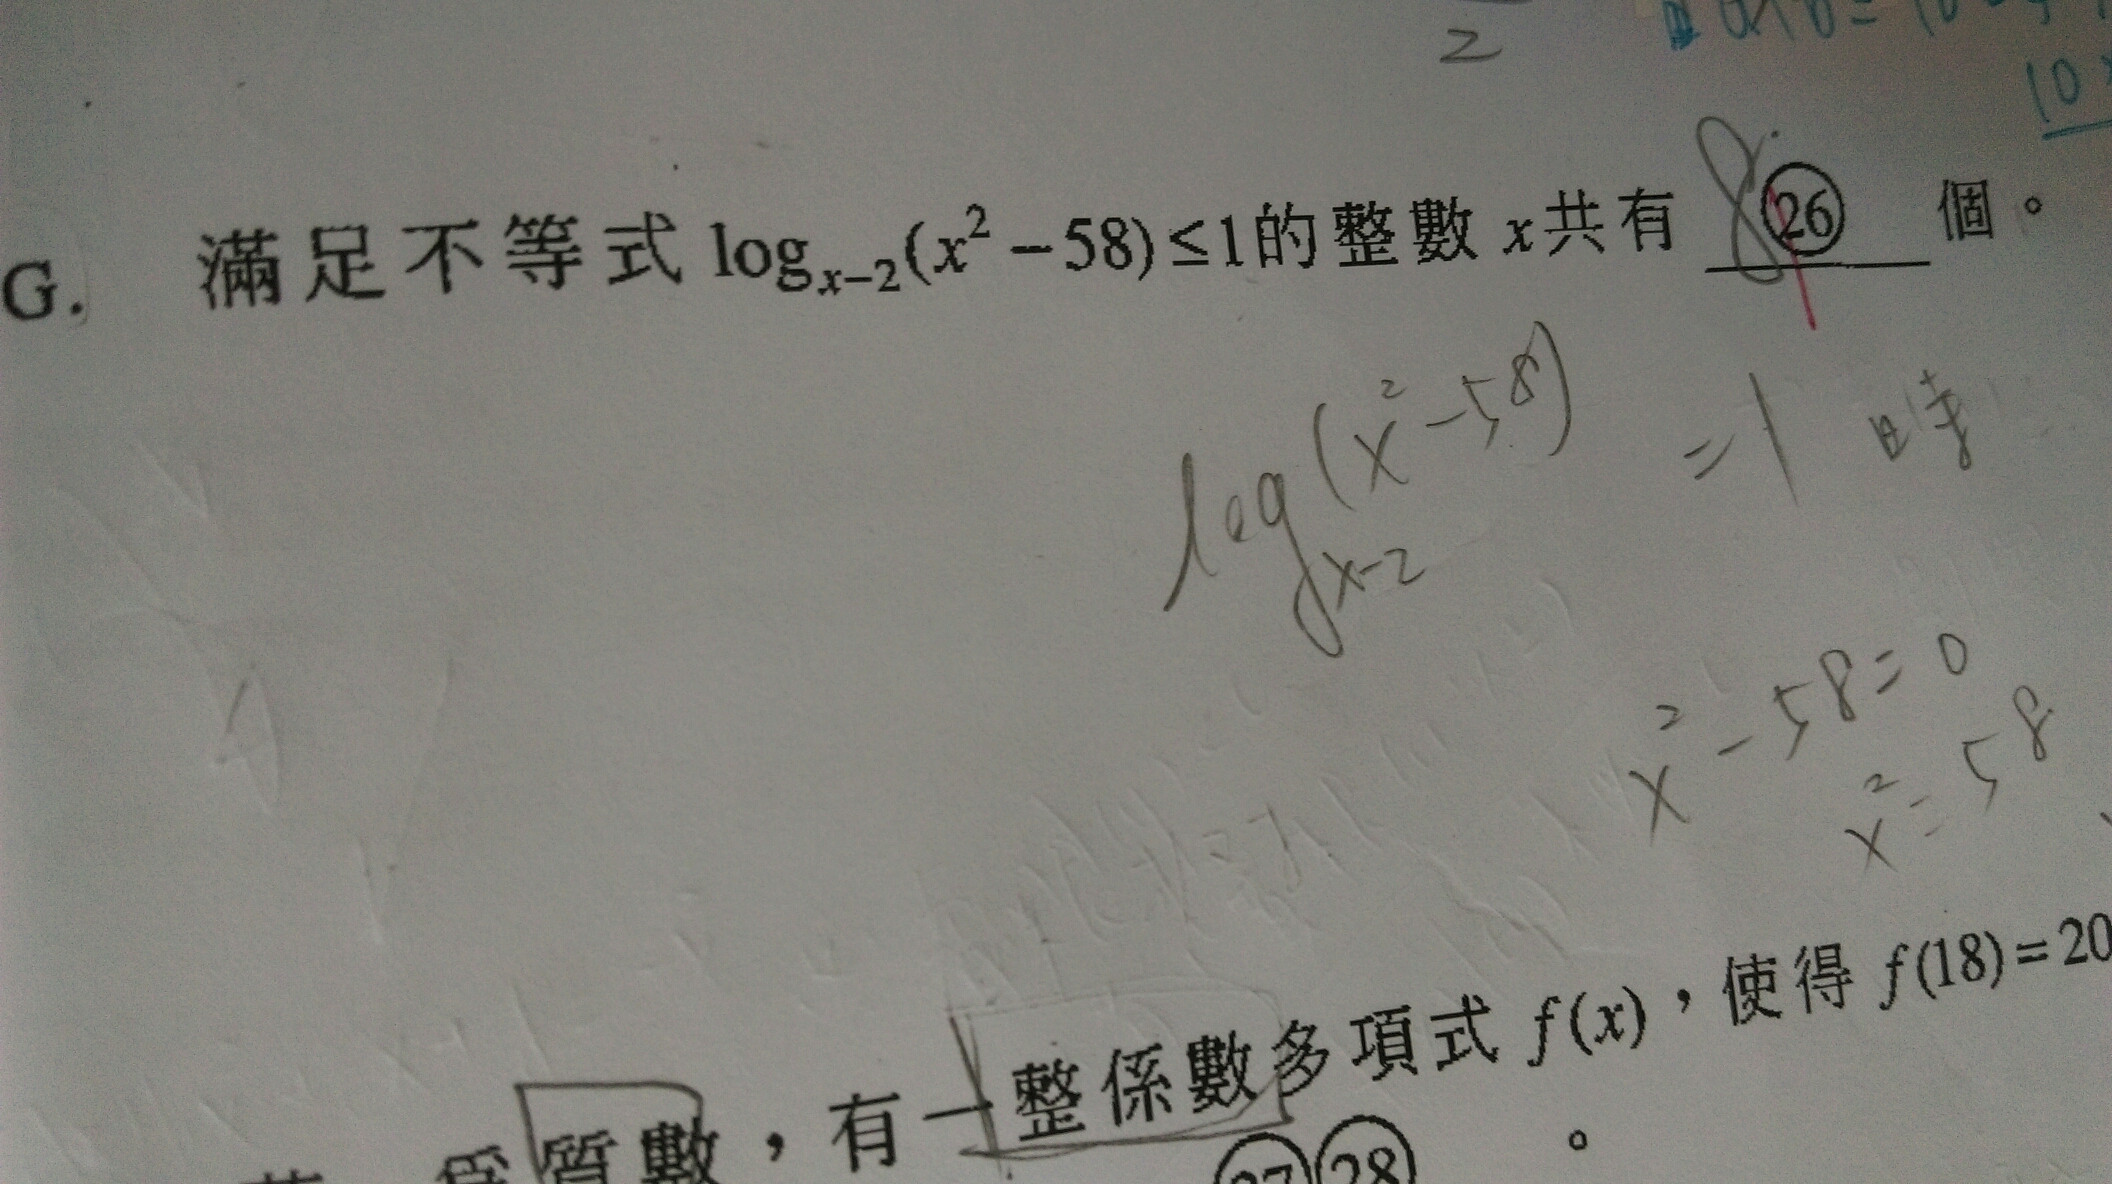 2
10
G. 滿足不等式 log_{x-2}(x² - 58) ≤ 1 的整數 x 共有 8 ㉖ 個。
1
log_{x-2}(x² - 58) = 1 時
x² - 58 = 0
x² = 58
為質數，有一整係數多項式 f(x)，使得 f(18) = 20
㉗㉘ 。